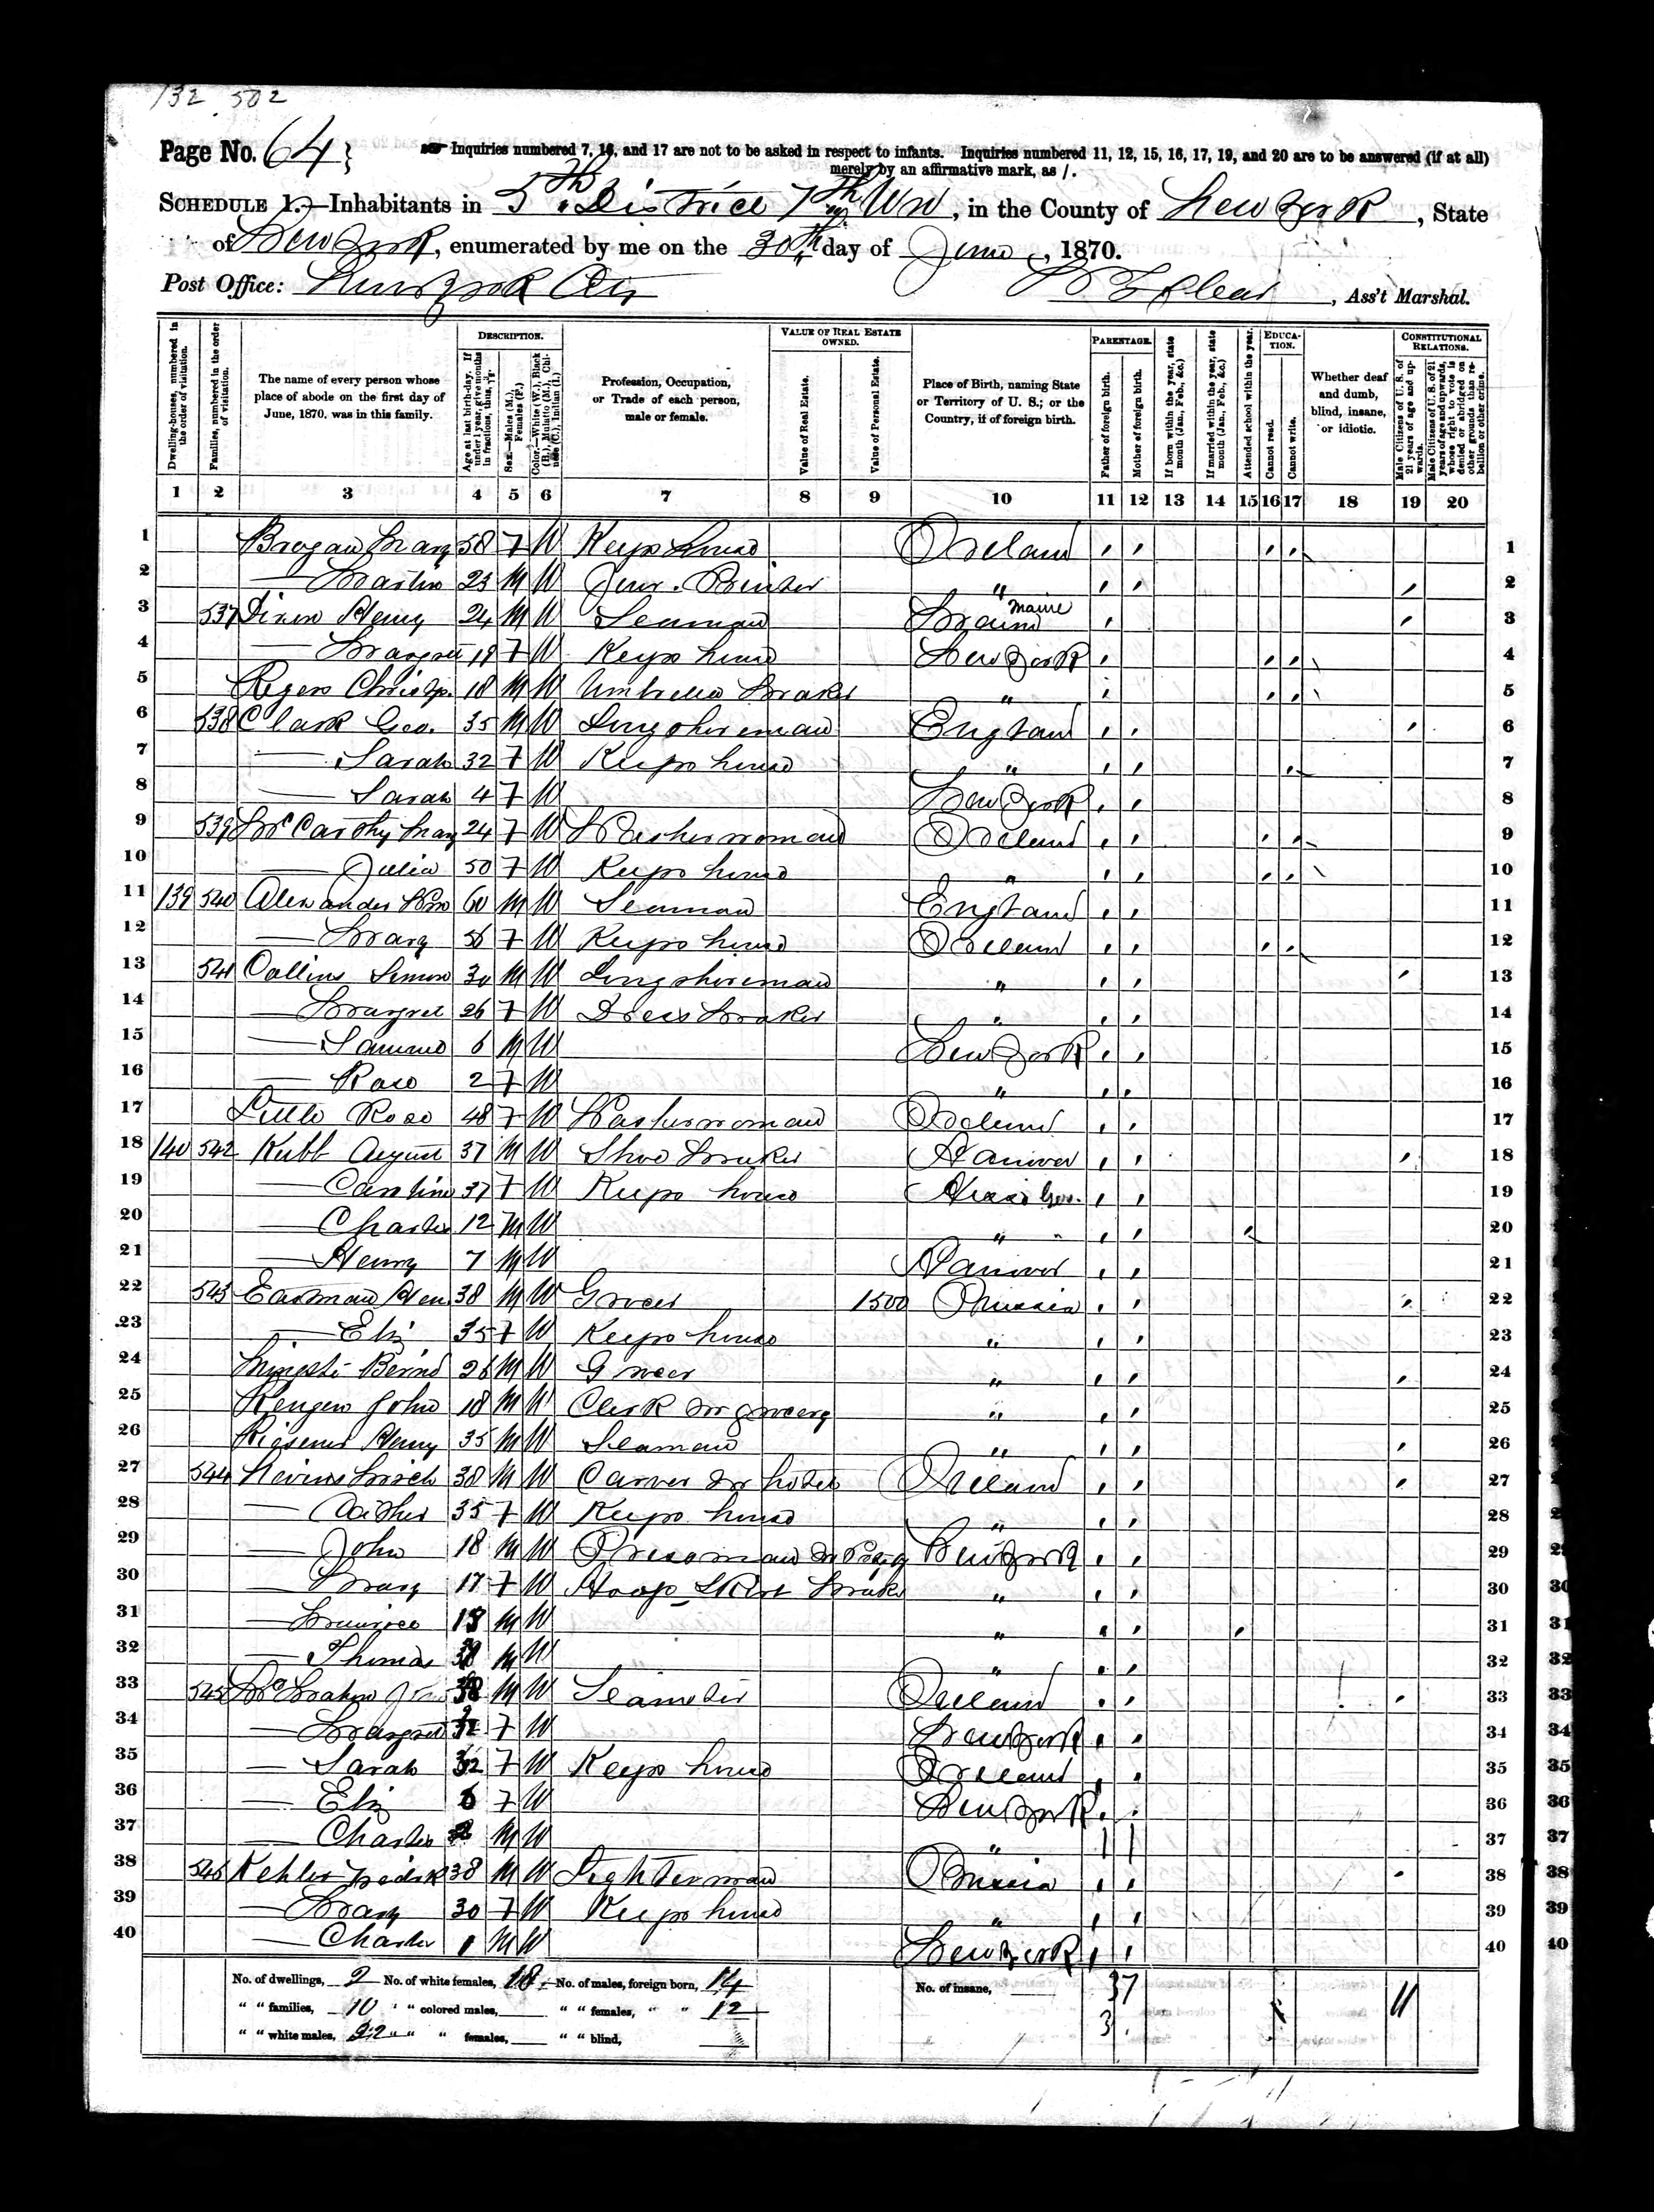 132 502
Page No. 64
Inquiries numbered 7, 16, and 17 are not to be asked in respect to infants. Inquiries numbered 11, 12, 15, 16, 17, 19, and 20 are to be answered (if at all)
merely by an affirmative mark, as /.
SCHEDULE 1.—Inhabitants in 5th District 7th Wd, in the County of New York, State
of New York, enumerated by me on the 30th day of June, 1870.
Post Office: New York City
, Ass't Marshal.
Dwelling-houses, numbered in the order of visitation.
Families, numbered in the order of visitation.
The name of every person whose place of abode on the first day of June, 1870, was in this family.
DESCRIPTION.
Age at last birth-day. If under 1 year, give months in fractions, thus,
Sex.—Males (M.), Females (F.)
Color.—White (W.), Black (B.), Mulatto (M.), Chinese (C.), Indian (I.)
Profession, Occupation, or Trade of each person, male or female.
VALUE OF REAL ESTATE OWNED.
Value of Real Estate.
Value of Personal Estate.
Place of Birth, naming State or Territory of U. S.; or the Country, if of foreign birth.
PARENTAGE.
Father of foreign birth.
Mother of foreign birth.
If born within the year, state month (Jan., Feb., &c.)
If married within the year, state month (Jan., Feb., &c.)
Attended school within the year.
EDUCATION.
Cannot read.
Cannot write.
Whether deaf and dumb, blind, insane, or idiotic.
CONSTITUTIONAL RELATIONS.
Male Citizens of U. S. of 21 years of age and upwards.
Male Citizens of U. S. of 21 years of age and upwards, whose right to vote is denied or abridged on other grounds than rebellion or other crime.
1 2 3 4 5 6 7 8 9 10 11 12 13 14 15 16 17 18 19 20
1 Brogan Mary 58 F W Keeps house Ireland 1
2 — Martin 23 M W Jour. Printer " 2
3 537 Dixon Henry 24 M W Seaman Maine Maine 3
4 — Margret 19 F W Keeps house New York 4
5 Rogers Christp. 18 M W Umbrella Maker " 5
6 538 Clark Geo. 35 M W Longshoreman England 6
7 — Sarah 32 F W Keeps house " 7
8 — Sarah 4 F W New York 8
9 539 McCarthy Mary 24 F W Washerwoman Ireland 9
10 — Julia 50 F W Keeps house " 10
11 139 540 Alexander Wm 60 M W Seaman England 11
12 — Mary 56 F W Keeps house Ireland 12
13 541 Collins Simon 30 M W Longshoreman " 13
14 — Margret 26 F W Dress Maker " 14
15 — 6 M W New York 15
16 — Rose 2 F W " 16
17 Little Rose 48 F W Washerwoman Ireland 17
18 140 542 Kubb August 37 M W Shoe Maker Hanover 18
19 — Caroline 37 F W Keeps house 19
20 — Charles 12 M W " " 20
21 — Henry 7 M W Hanover 21
22 543 Eastman Hen 38 M W Grocer 1500 Prussia 22
23 — Eliz 35 F W Keeps house " 23
24 Bernd 26 M W Grocer " 24
25 John 18 M W Clerk in grocery " 25
26 Henry 35 M W Seaman " 26
27 544 Nevins Mich 38 M W Carver in hotel Ireland 27
28 — 35 F W Keeps house " 28
29 — John 18 M W Pressman in New York 29
30 — Mary 17 F W Hoop Skirt Maker " 30
31 — Maurice 13 M W " 31
32 — Thomas M W " 32
33 545 McMahon 38 M W Ireland 33
34 — Margret F W New York 34
35 — Sarah 32 F W Keeps house Ireland 35
36 — Eliz 6 F W New York 36
37 — Charles 2 M W " 37
38 546 Kehler Fredrk 38 M W Lighterman Prussia 38
39 — Mary 30 F W Keeps house " 39
40 — Charles 1 M W New York 40
No. of dwellings, 2 No. of white females, 18 No. of males, foreign born, 14 No. of insane, 37 11
" " families, 10 " " colored males, " " females, " " 12 3
" " white males, 22 " " " females, " " blind,